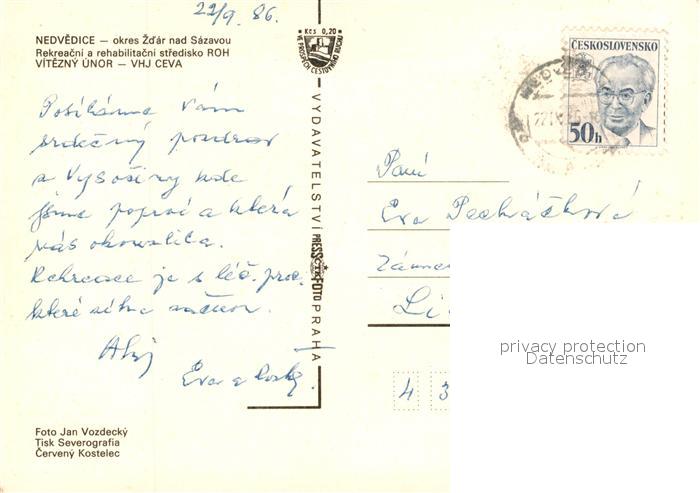 22/9. 86.
NEDVĚDICE — okres Žďár nad Sázavou
Rekreační a rehabilitační středisko ROH
VÍTĚZNÝ ÚNOR — VHJ CEVA
Posíláme Vám
srdečný pozdrav
z Vysočiny kde
jsme poprvé a která
nás okouzlila.
Rekreace je s léč. proc.
které
Ahoj
Eva a
Foto Jan Vozdecký
Tisk Severografia
Červený Kostelec
Kčs 0,20
VE PROSPĚCH CESTOVNÍHO RUCHU
VYDAVATELSTVÍ PRESSFOTO PRAHA
ČTK
ČESKOSLOVENSKO
50h
Paní
Eva Pecháčková
Li
4 3
privacy protection
Datenschutz